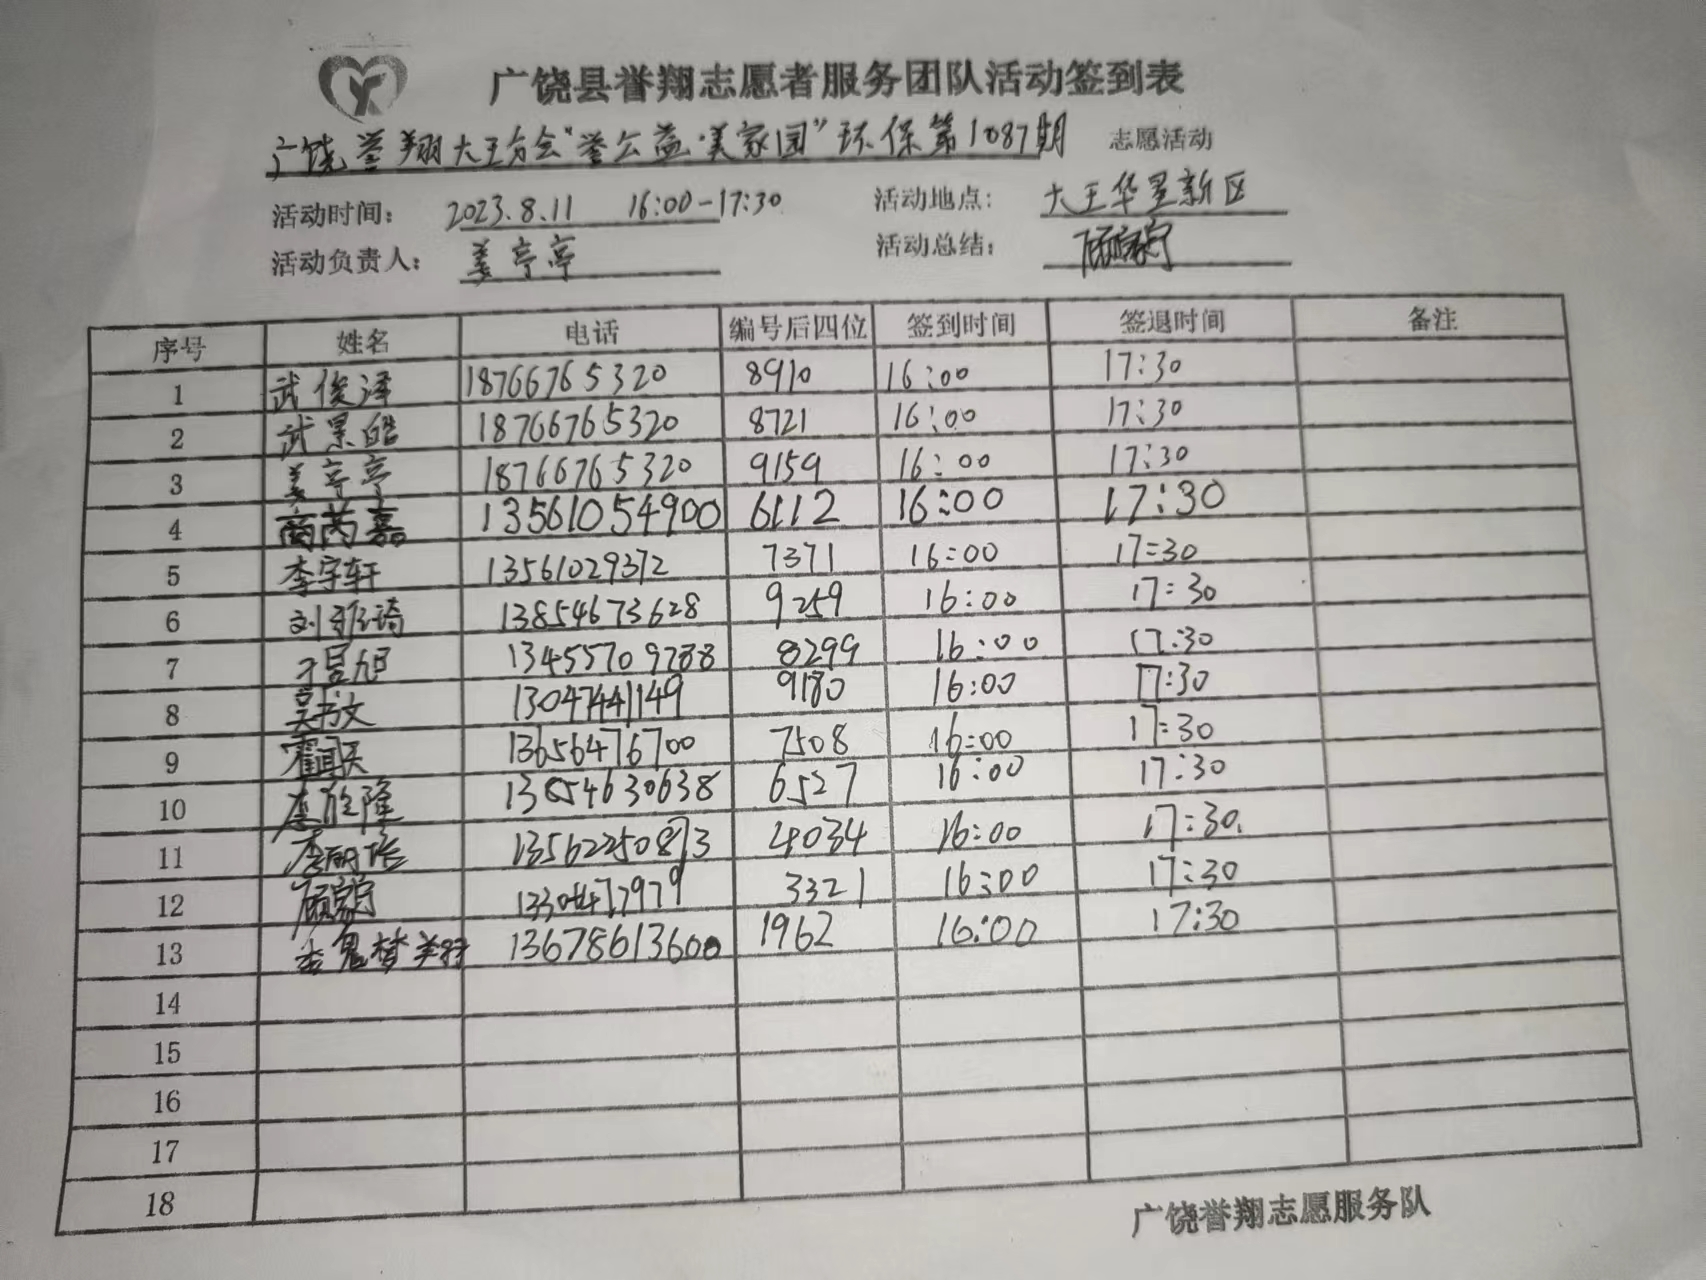 广饶县誉翔志愿者服务团队活动签到表
广饶誉翔大王分会“誉公益·美家园”环保第1087期 志愿活动
活动时间： 2023.8.11 16:00-17:30 活动地点： 大王华星新区
活动负责人： 姜亭亭 活动总结： 顾家宁
序号 姓名 电话 编号后四位 签到时间 签退时间 备注
1 武俊泽 18766765320 8910 16:00 17:30
2 武景皓 18766765320 8721 16:00 17:30
3 姜亭亭 18766765320 9159 16:00 17:30
4 商芮嘉 13561054900 6112 16:00 17:30
5 李宇轩 13561029372 7371 16:00 17:30
6 刘雅琦 13854673628 9259 16:00 17:30
7 13455709788 8299 16:00 17:30
8 吴书文 13047441149 9180 16:00 17:30
9 13656476700 7508 16:00 17:30
10 13854630638 6527 16:00 17:30
11 13562250873 4034 16:00 17:30
12 顾家宁 3321 16:00 17:30
13 13678613600 1962 16:00 17:30
14
15
16
17
18
广饶誉翔志愿服务队